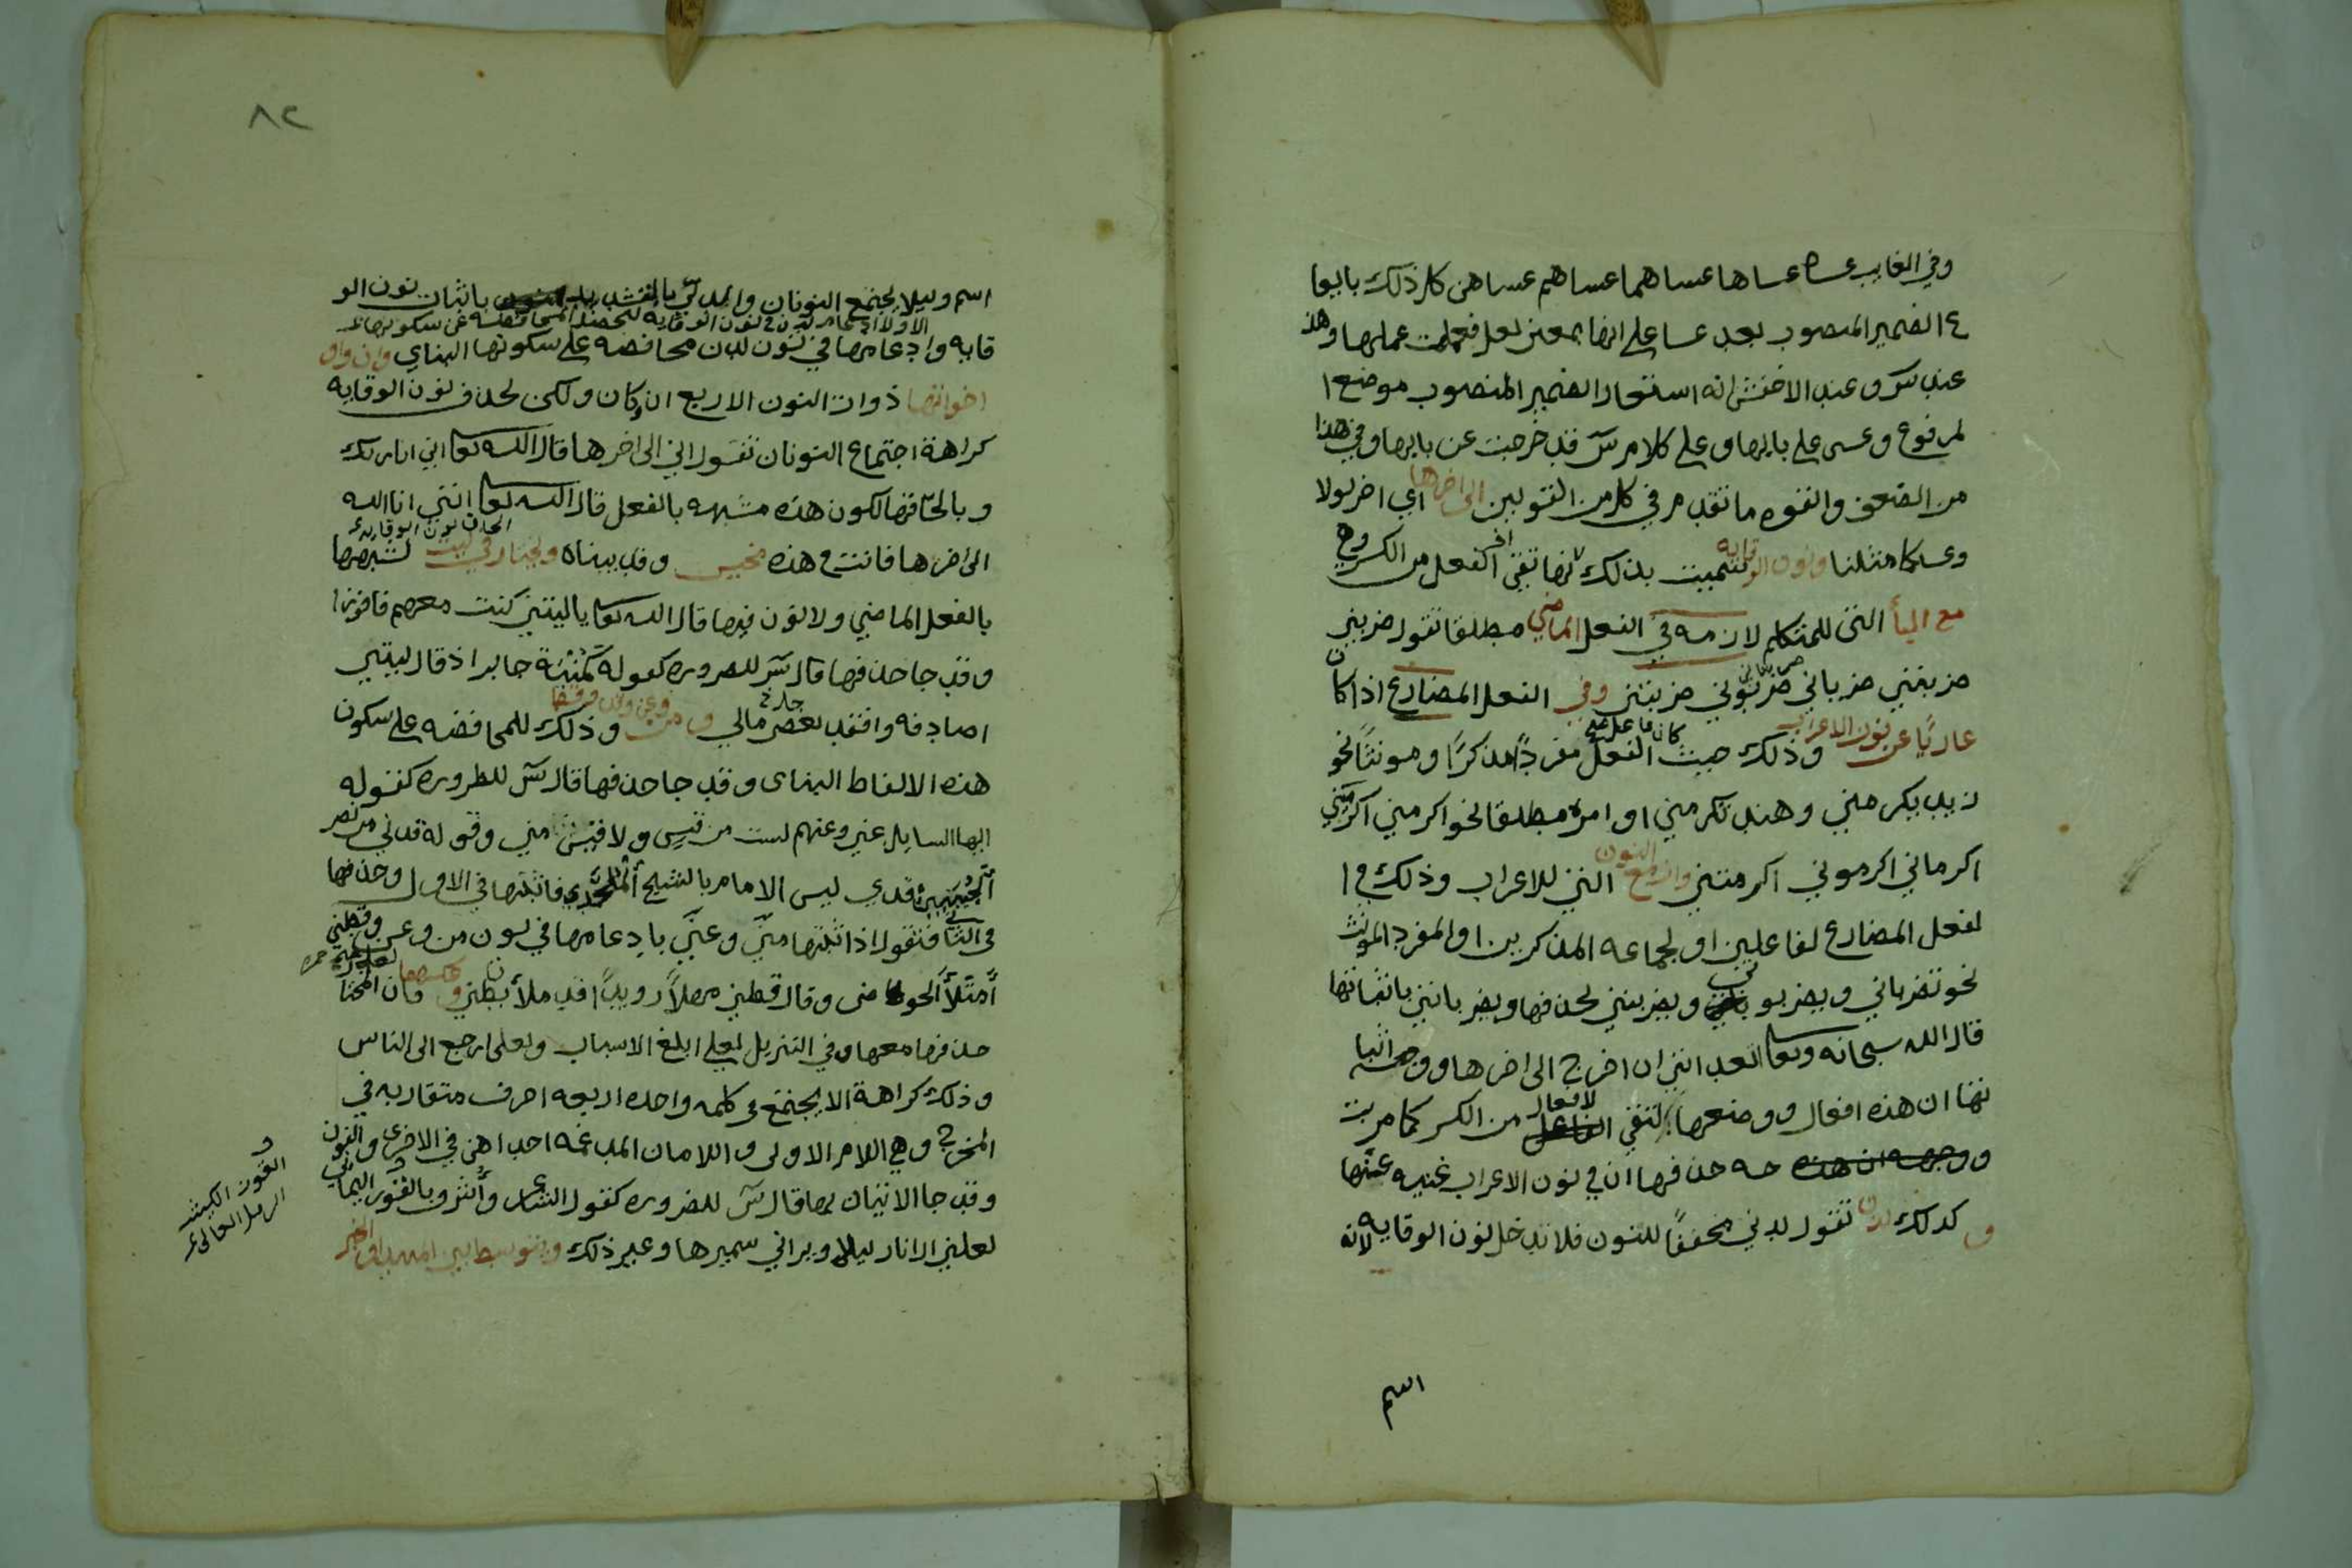 وفي الغايب عساه عساها عساهما عساهم عساهن كل ذلك بايقا
ع الضمير المنصوب بعد عسا على انها بمعنى لعل فعملت عملها وهذ
عند س وعند الاخفش انه استعار الضمير المنصوب موضع ا
لمرفوع وعسى على بابها وعلى كلام س قد خرجت عن بابها وفي هذا
من الضعف والقوه ما تقدم في كل من القولين الى اخرها اي اخر لولا
وعساكما مثلنا ونون الوقايه سميت بذلك لانها تقي اخر الفعل من الكسر وهي
مع اليا التي للمتكلم لازمه في الفعل الماضي مطلقا تقول ضربني
ضربتني ضرباني ضربتاني ضربوني ضربنني وفي الفعل المضارع اذا كان
عاريًا عن نون الاعراب وذلك حيث كان فاعل الفعل مفردًا مذكرًا ومونثًا نحو
زيد يكرمني وهند تكرمني او امره مطلقا نحو اكرمني اكرميني
اكرماني اكرموني اكرمنني وان مع النون التي للاعراب وذلك في ا
لفعل المضارع لفاعلين او لجماعه المذكرين او المفرد المونث
نحو تضرباني ويضربوني وتضربيني بحذفها ويضربانني باثباتها
قال الله سبحانه وتعالى اتعدانني ان اخرج الى اخرها ووجه اثبا
تها ان هذه افعال ووضعها لتقي الافعال من الكسر كما مريت
ووجه حذفها ان في نون الاعراب غنيه عنها
وكذلك لدن تقول لدني مخففًا للنون فلا تدخل نون الوقايه لانه
اسم
٨٢
اسم وليلا يجتمع النونان ولدني بالتشديد باثبات نون الو
قايه وادغامها في نون لدن محافضه على سكونها البناي وان واو
اخواتها ذوات النون الاربع ان وكان ولكن بحذف نون الوقايه
كراهة اجتماع النونان تقول اني الى اخرها قال الله تعالى اني انا ربك
وبالحاقها لكون هذه مشبهه بالفعل قال الله تعالى انني انا الله
الى اخرها فانت في هذه مخير وقد بيناه ويختار في ليت الحاق نون الوقايه لشبهها
بالفعل الماضي ولا نون فيها قال الله تعالى ياليتني كنت معهم فافوز ا
وقد جا حذفها قال س للضروره كقوله كمنية جابر اذ قال ليتي
اصادفه وافقد بعض مالي ومن وعن وقد وقط وذلك للمحافضه على سكون
هذه الالفاظ البناى وقد جا حذفها قال س للظروره كقوله
ايها السايل عني وعنهم لست من قيس ولا قيس مني وقوله قدني من نصر
الخبيبين قدي ليس الامام بالشحيح الملحد فاثبتها في الاول وحذفها
في الثاني فتقول اذا اثبتها منّي وعنّي بادغامها في نون من وعن وقطني
امتلأ الحوض وقال قطني مهلاً رويدًا قد ملأت بطني وعكسها لعل فان المختار
حذفها معها وفي التنزيل لعلي ابلغ الاسباب ولعلي ارجع الى الناس
وذلك كراهة الا يجتمع في كلمه واحده اربعه احرف متقاربه في
المخرج وهي اللام الاولى واللامان المدغمه احداهن في الاخرى والنون
وقد جا الاتيان بها قال س للضروره كقول الشاعر وأشرف بالقور اليماني
لعلني ارا نار ليلى ويراني سميرها وغير ذلك ويتوسط بين المبتدا والخبر